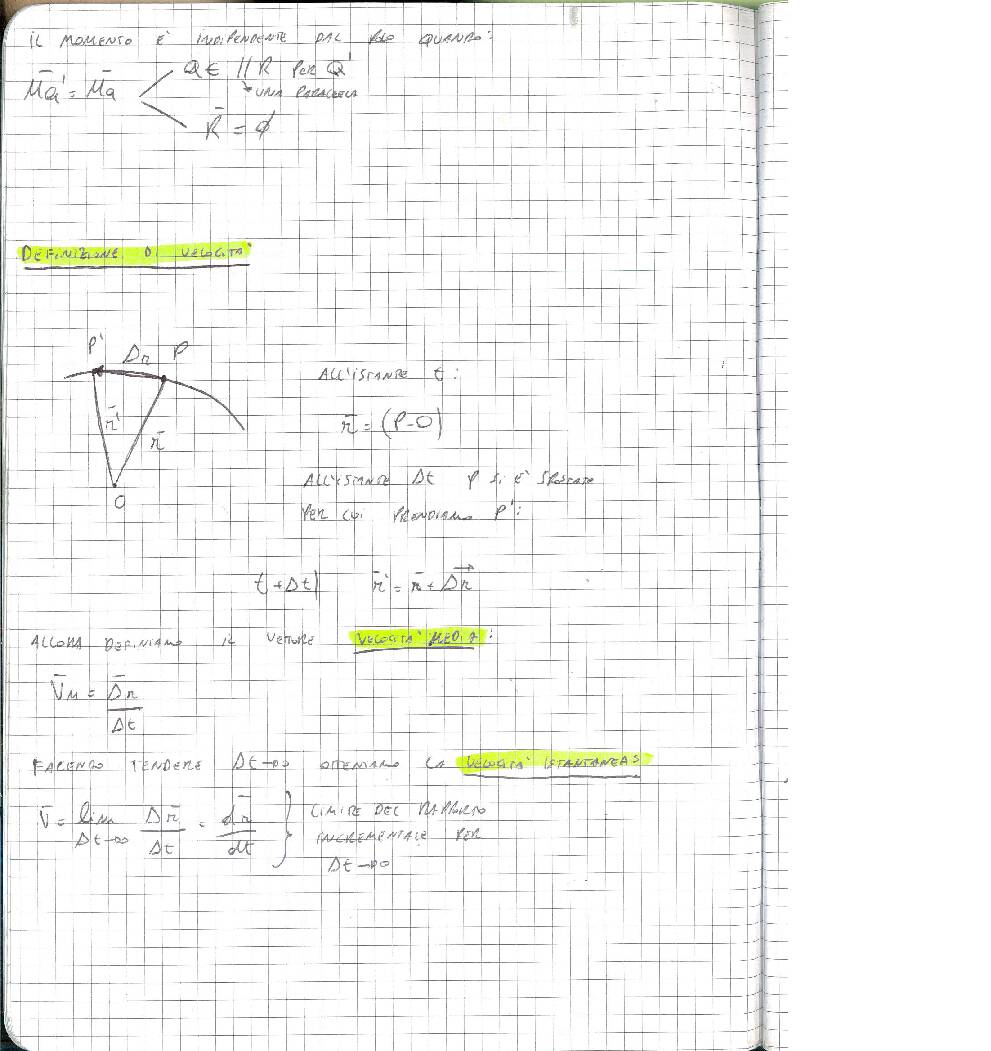 IL MOMENTO E' INDIPENDENTE DAL POLO QUANDO:
M̄Q' = M̄Q
Q ∈ // R PER Q'
UNA PARALLELA
R̄ = ∅
DEFINIZIONE DI VELOCITA'
P' Δr P
r̄' r̄
O
ALL'ISTANTE t:
r̄ = (P-O)
ALL'ISTANTE Δt P SI E' SPOSTATO
PER CUI PRENDIAMO P':
(t+Δt) r̄' = r̄ + Δr⃗
ALLORA DEFINIAMO IL VETTORE VELOCITA' MEDIA:
V̄M = Δ̄r / Δt
FACENDO TENDERE Δt→∞ OTTENIAMO LA VELOCITA' ISTANTANEA:
V̄ = lim Δt→∞ Δr̄ / Δt = dr̄ / dt
LIMITE DEL RAPPORTO
INCREMENTALE PER
Δt→∞